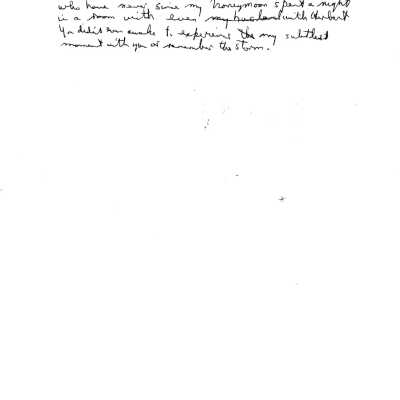 who have never since my honeymoon spent a night
in a room with even my husband with Herbert
You didn't even awake to experience the my subtlest
moment with you or remember the storm.